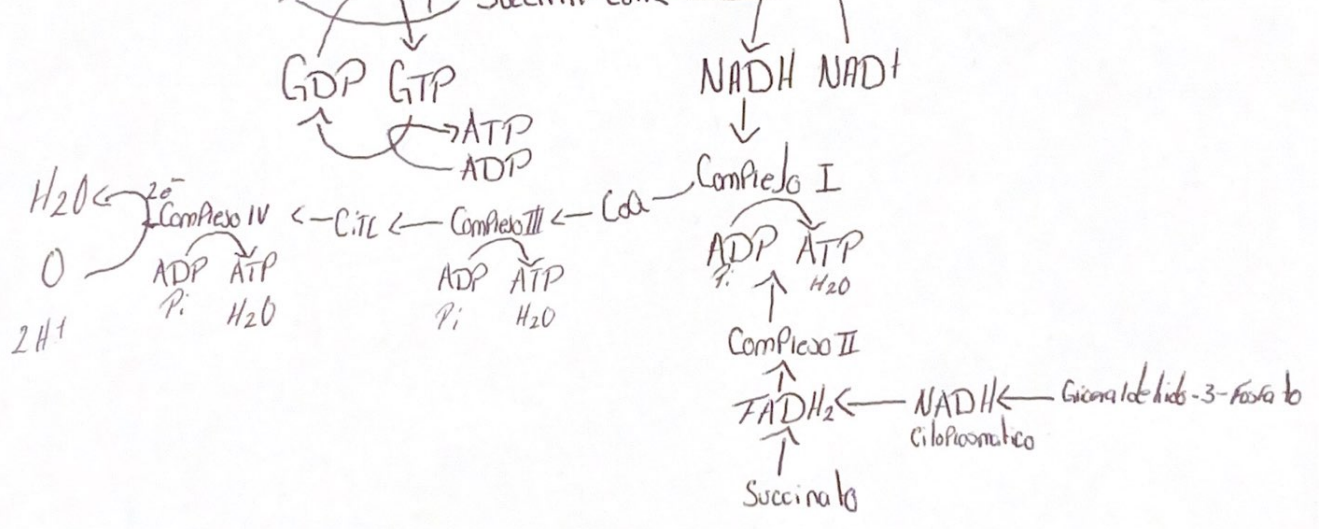 GDP GTP
NADH NAD+
ATP
ADP
Complejo I
H2O
2e-
Complejo IV <- CitC <- Complejo III <- CoQ
O
ADP ATP
Pi H2O
ADP ATP
Pi H2O
ADP ATP
Pi H2O
2H+
Complejo II
FADH2 <- NADH <- Gliceraldehido-3-fosfato
Citoplasmatico
Succinato